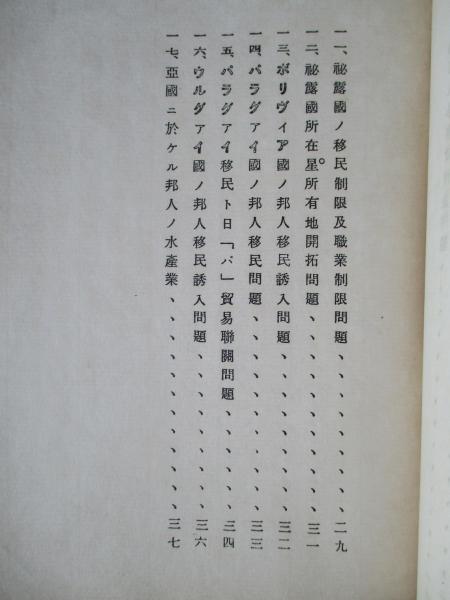 一一、祕露國ノ移民制限及職業制限問題、、、、、、、、、、二九
一二、祕露國所在星。所有地開拓問題、、、、、、、、、、、三一
一三、ボリヴィア國ノ邦人移民誘入問題、、、、、、、、、三二
一四、パラグアイ國ノ邦人移民問題、、、、、、、、、、、三三
一五、パラグアイ移民ト日「パ」貿易聯關問題、、、、、、三四
一六、ウルグアイ國ノ邦人移民誘入問題、、、、、、、、、三六
一七、亞國ニ於ケル邦人ノ水產業、、、、、、、、、、、、三七